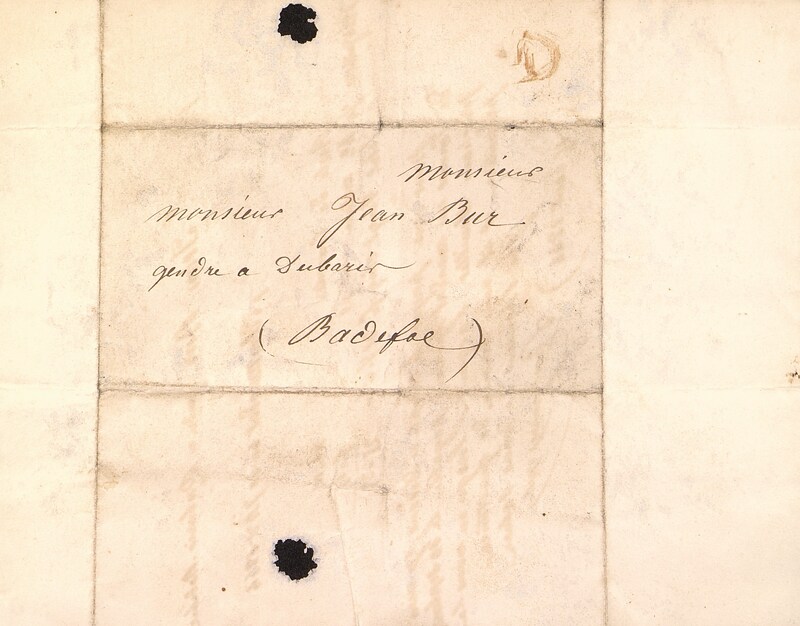 Monsieur
monsieur Jean Bur
gendre a Dubaris
(Badefol)